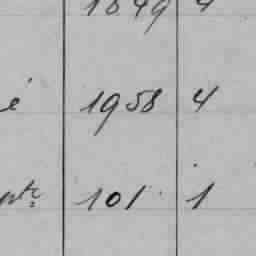 1849 4
é 1958 4
pte 101 1